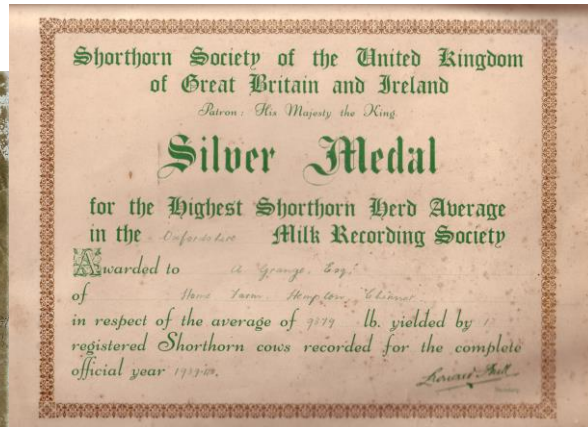 Shorthorn Society of the United Kingdom
of Great Britain and Ireland
Patron: His Majesty the King
Silver Medal
for the Highest Shorthorn Herd Average
in the Oxfordshire Milk Recording Society
Awarded to A Grange Esq.
of Home Farm
in respect of the average of lb. yielded by
registered Shorthorn cows recorded for the complete
official year 1939-40.